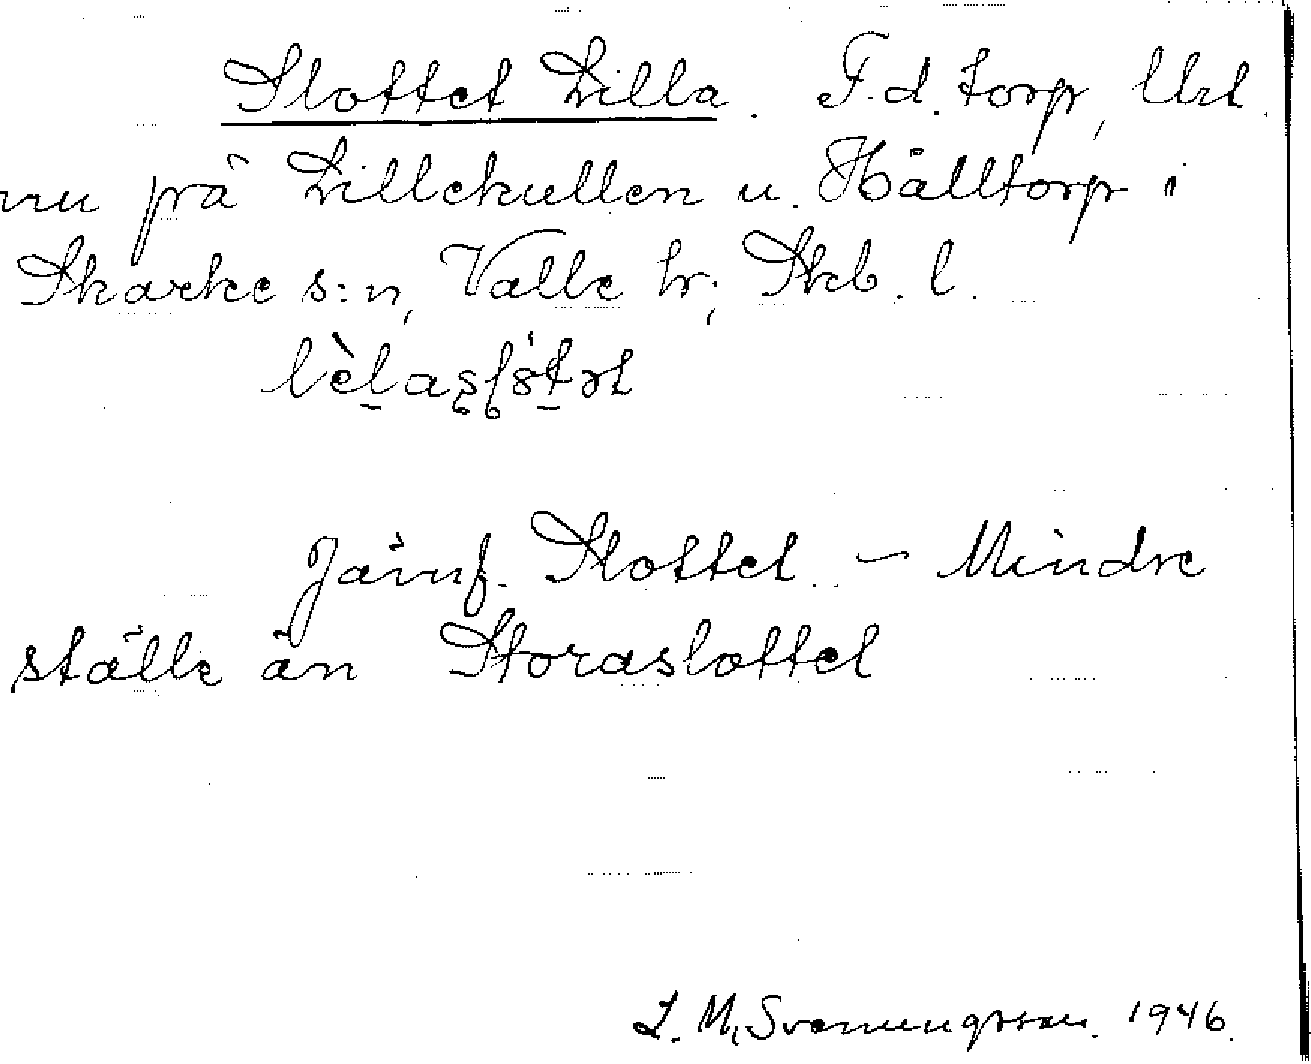 Slottet Lilla. F.d. torp,
nu på Lillekullen u. Hålltorp i
Skarke s:n, Valle hr; Skb. l.
Jämf. Slottet. – Mindre
ställe än Storaslottet
L. M. Svenungsson. 1946.